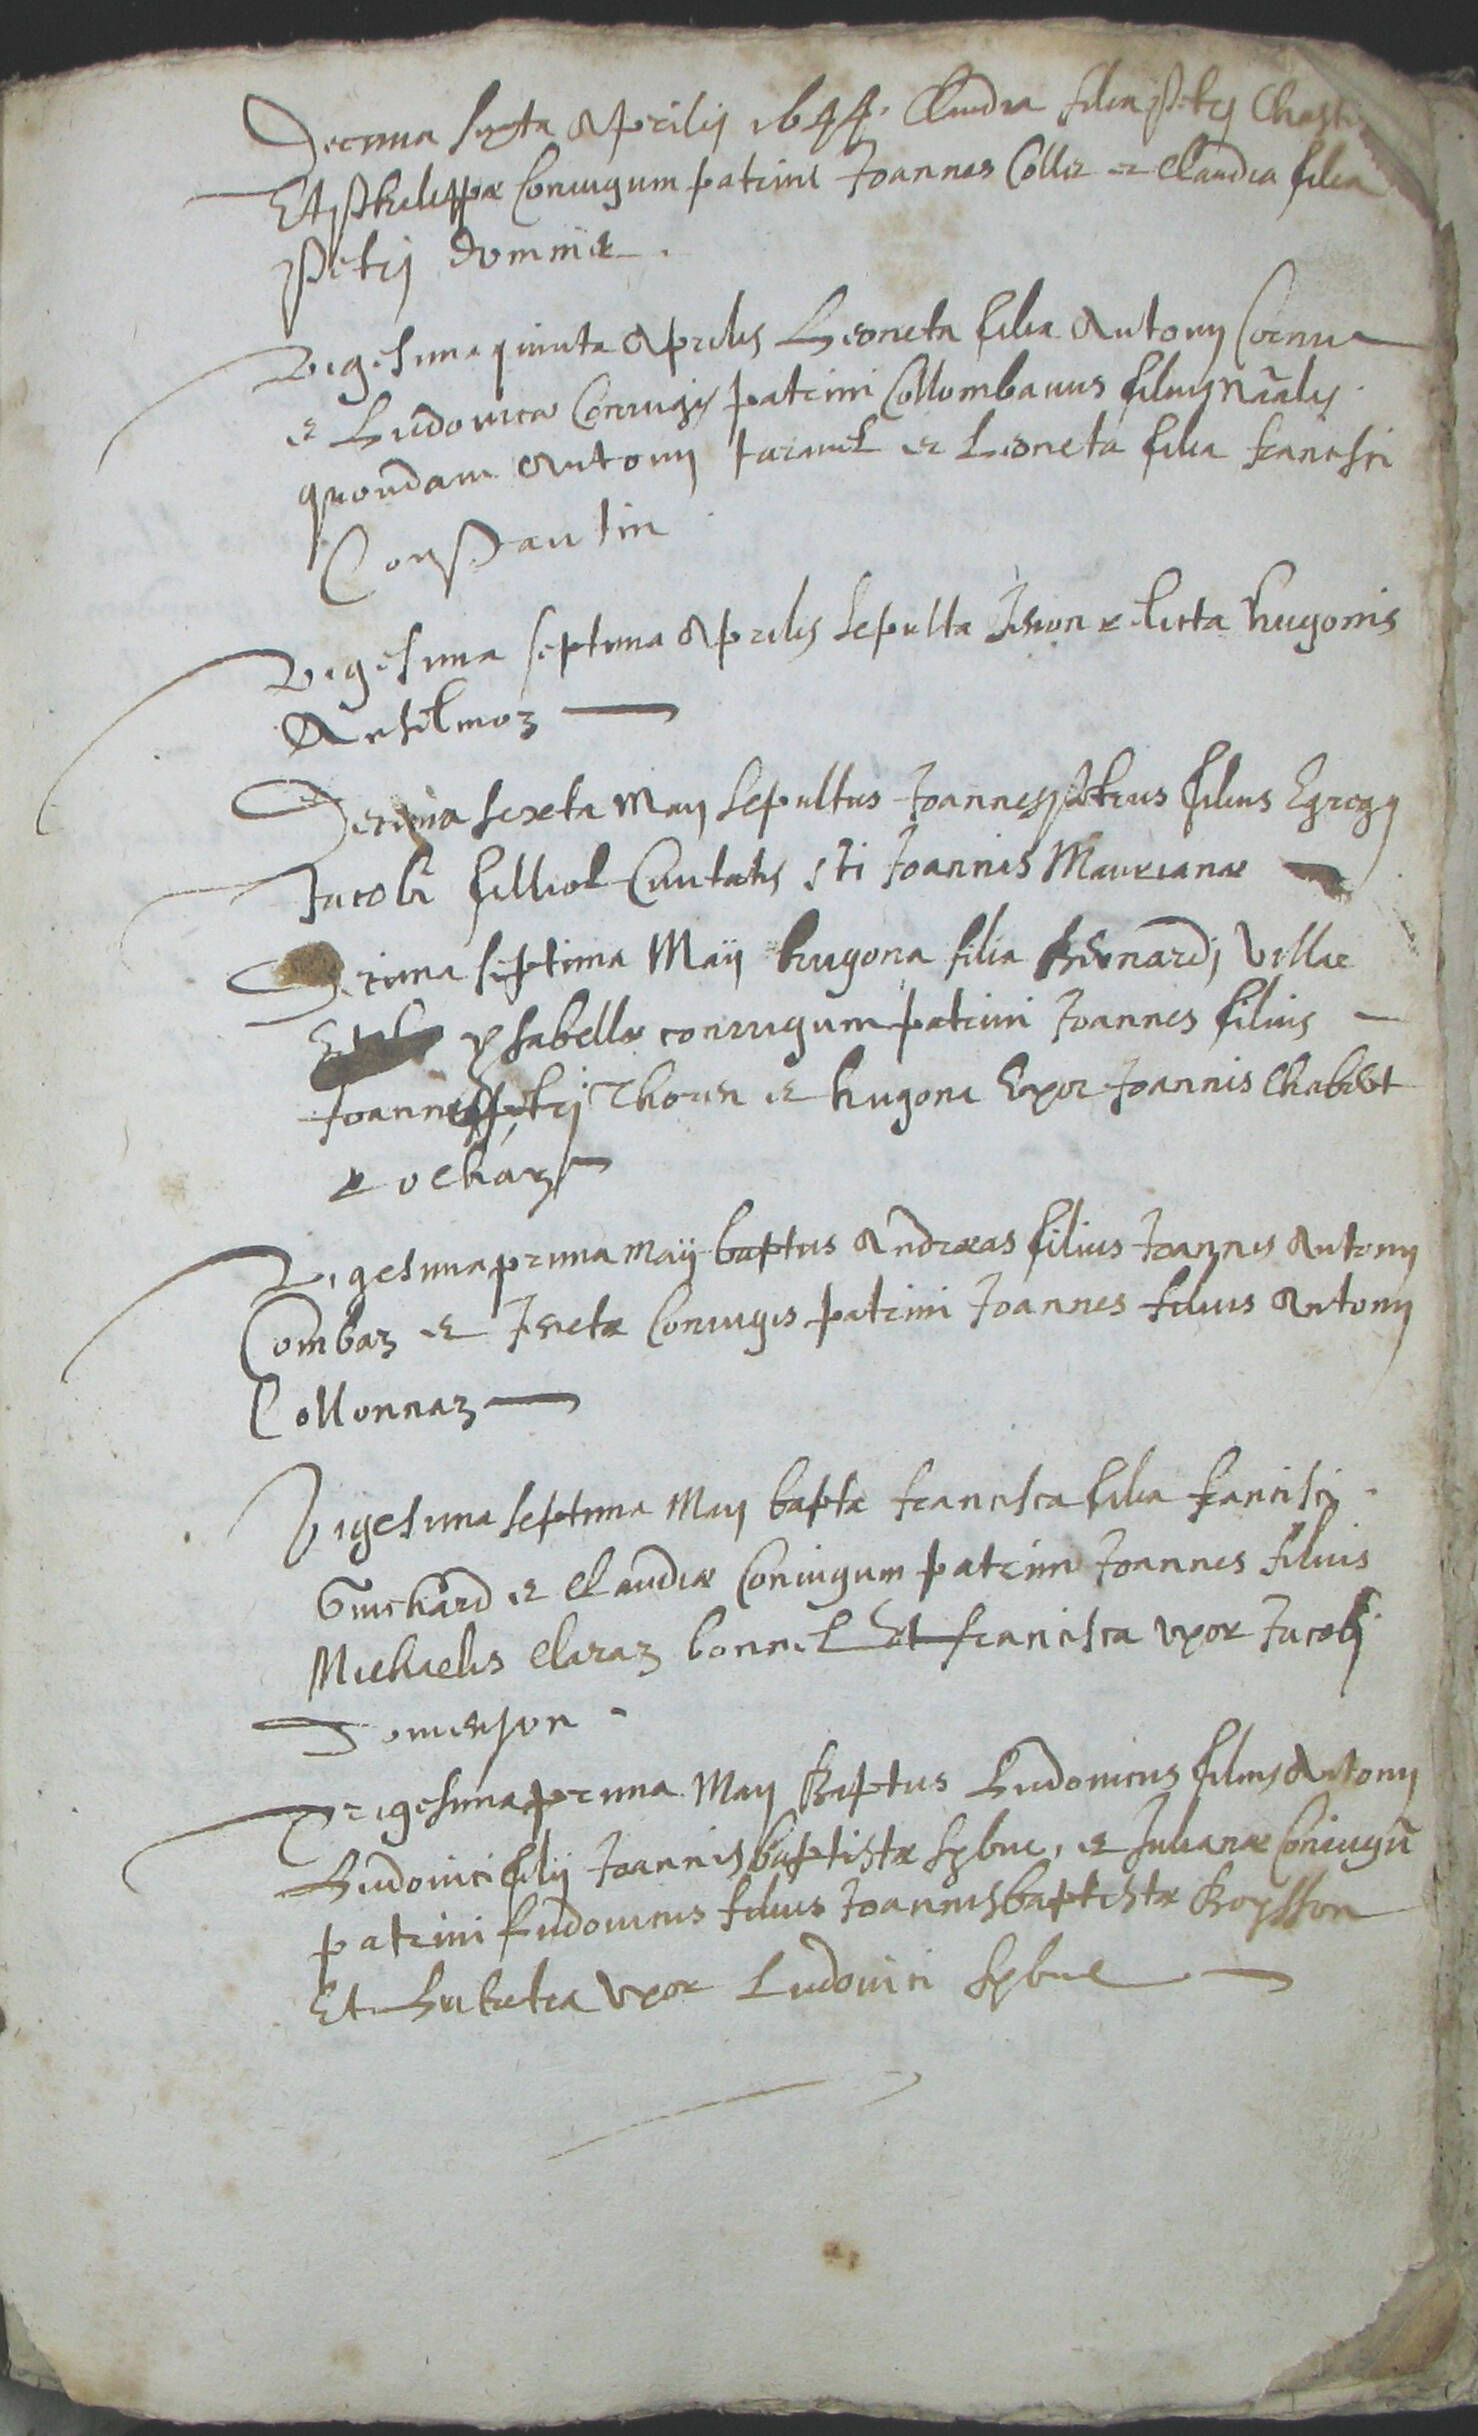 Decima sexta Aprilis 1644. Claudia filia petri
Et philippæ Coniugum patrini Joannes Collet et Claudia filia
petri dominiet.
Vigesima quinta Aprilis Leoneta filia Antonij Cornu
et Ludovicæ Coniugis patrini Collombanus filius nãalis
quondam Antonij taravel et Leoneta filia francisci
Constantin
Vigesima septima Aprilis sepulta relicta hugonis
Anselmoz
Decima sexta Maij sepultus Joannespetrus filius Egregij
Jacobi filliol Civitatis sti Joannis Maurianæ
Decima septima Maij hugona filia Bernardj Villiet
Et ysabellæ coniugum patrini Joannes filius
Joannispetrj Thorin et hugona Uxor Joannis Chabert
rochaz
Vigesimaprima maij baptus Andræas filius Joannis Antonij
Combaz et Coniugis patrini Joannes filius Antonij
Collonnaz
Vigesima septima Maij bapta francisca filia francisci
Guichard et Claudiæ Coniugum patrini Joannes filius
Michaelis Claraz bonnel Et francisca vxor Jacobj
Domenjon.
Trigesimaprima Maij Baptus Ludovicus filius Antonij
Ludovici filij Joannisbaptistæ Sybue, et Julianæ Coniugũ
patrini Ludovicus filius Joannisbaptistæ Boysson
Et vxor Ludovici Sybue